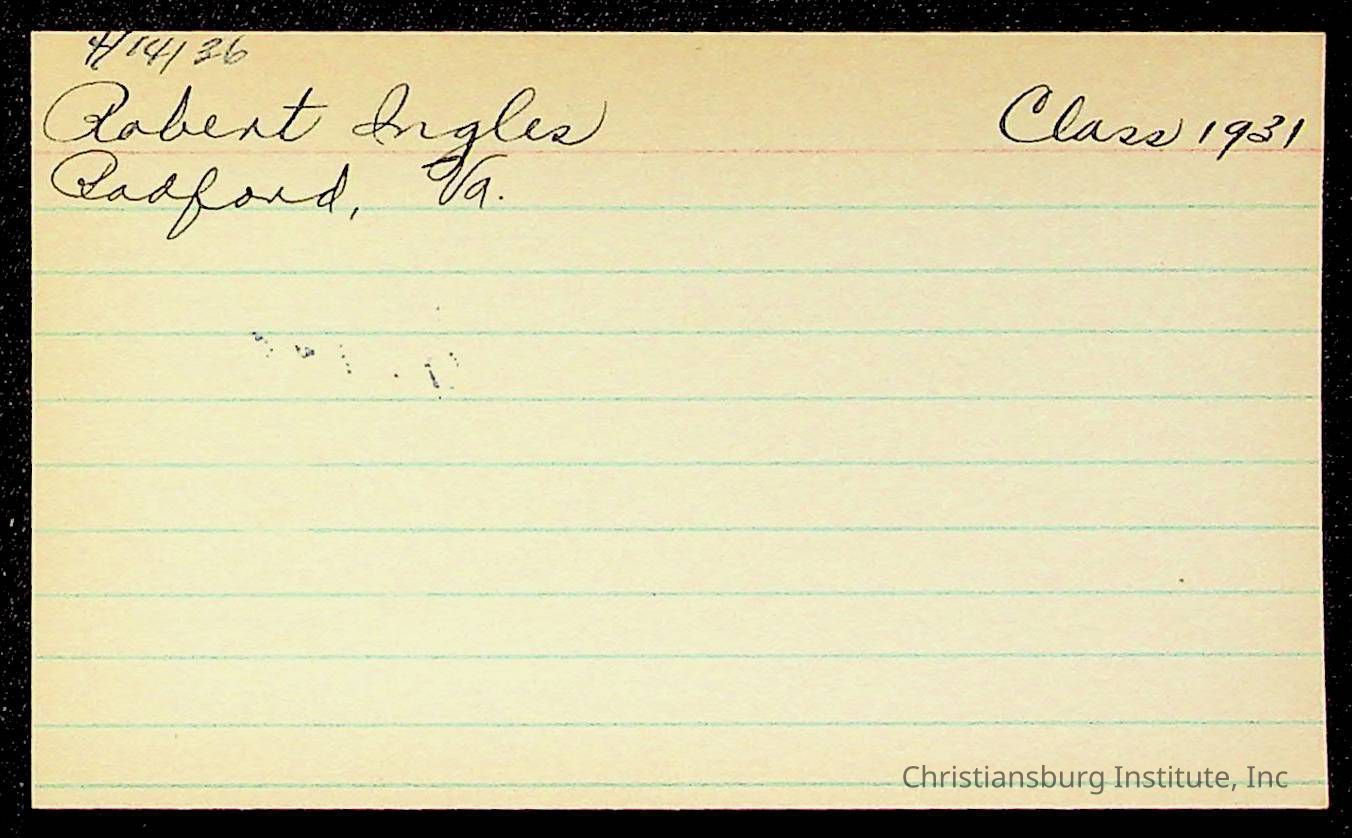 4/14/36
Robert Ingles Class 1931
Radford, Va.
Christiansburg Institute, Inc